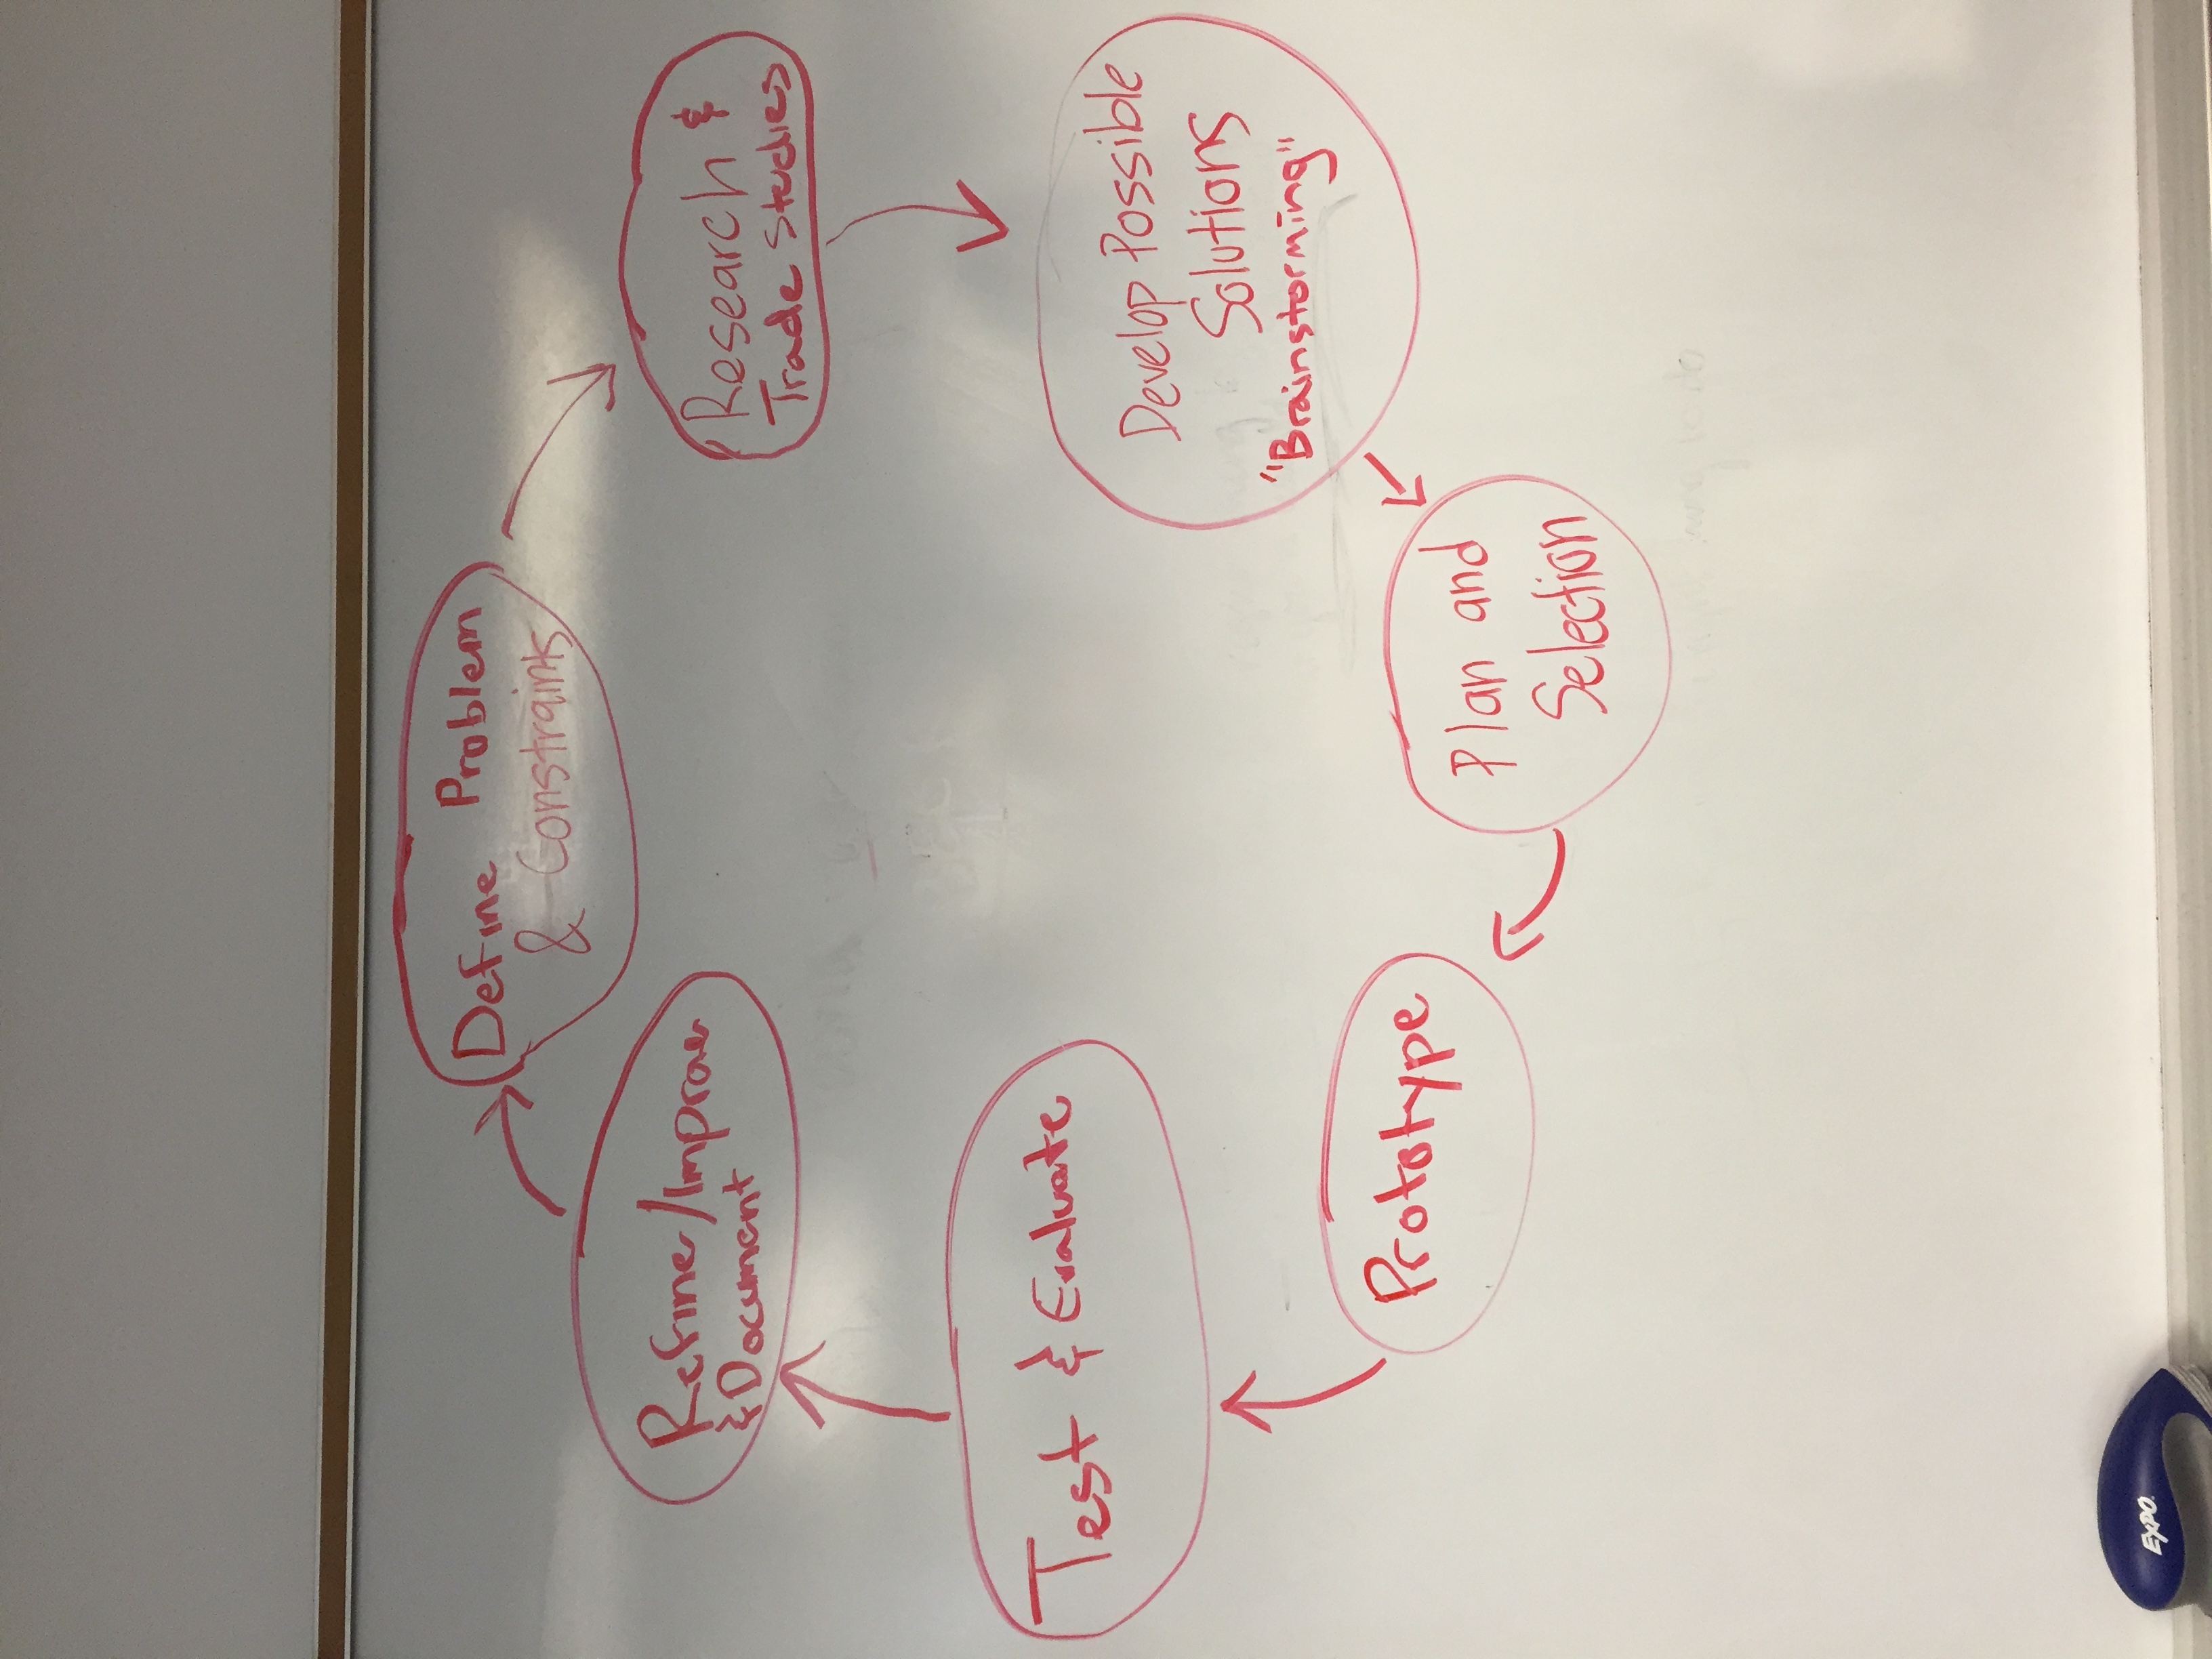 Define Problem
& Constraints
Research &
Trade Studies
Develop Possible
Solutions
"Brainstorming"
Plan and
Selection
Prototype
Test & Evaluate
Refine/Improve
& Document
EXPO